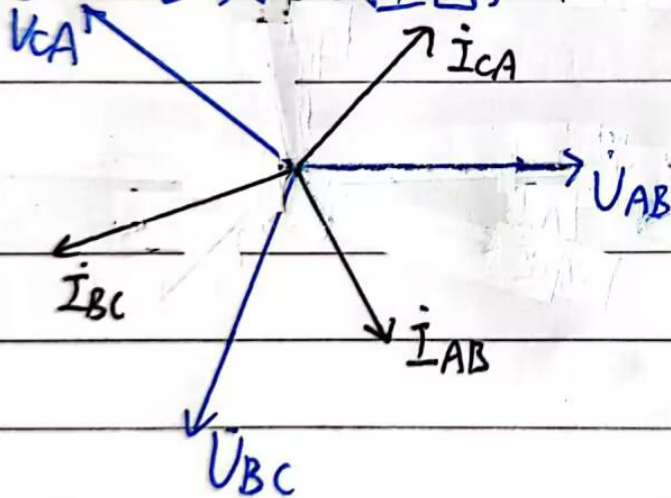 U̇CA
İCA
U̇AB
İBC
İAB
U̇BC